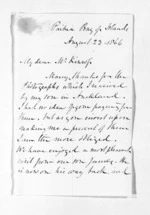 Paihia Bay of Islands
August 23 1866
My dear Mr
Many thanks for the
Photographs which I received
by my son in Auckland.
I had no idea of your paying for
them, but as you insist upon
making me a present of them
I am the more obliged.
We have enjoyed a most pleasant
visit from our son
He is now on his way back and